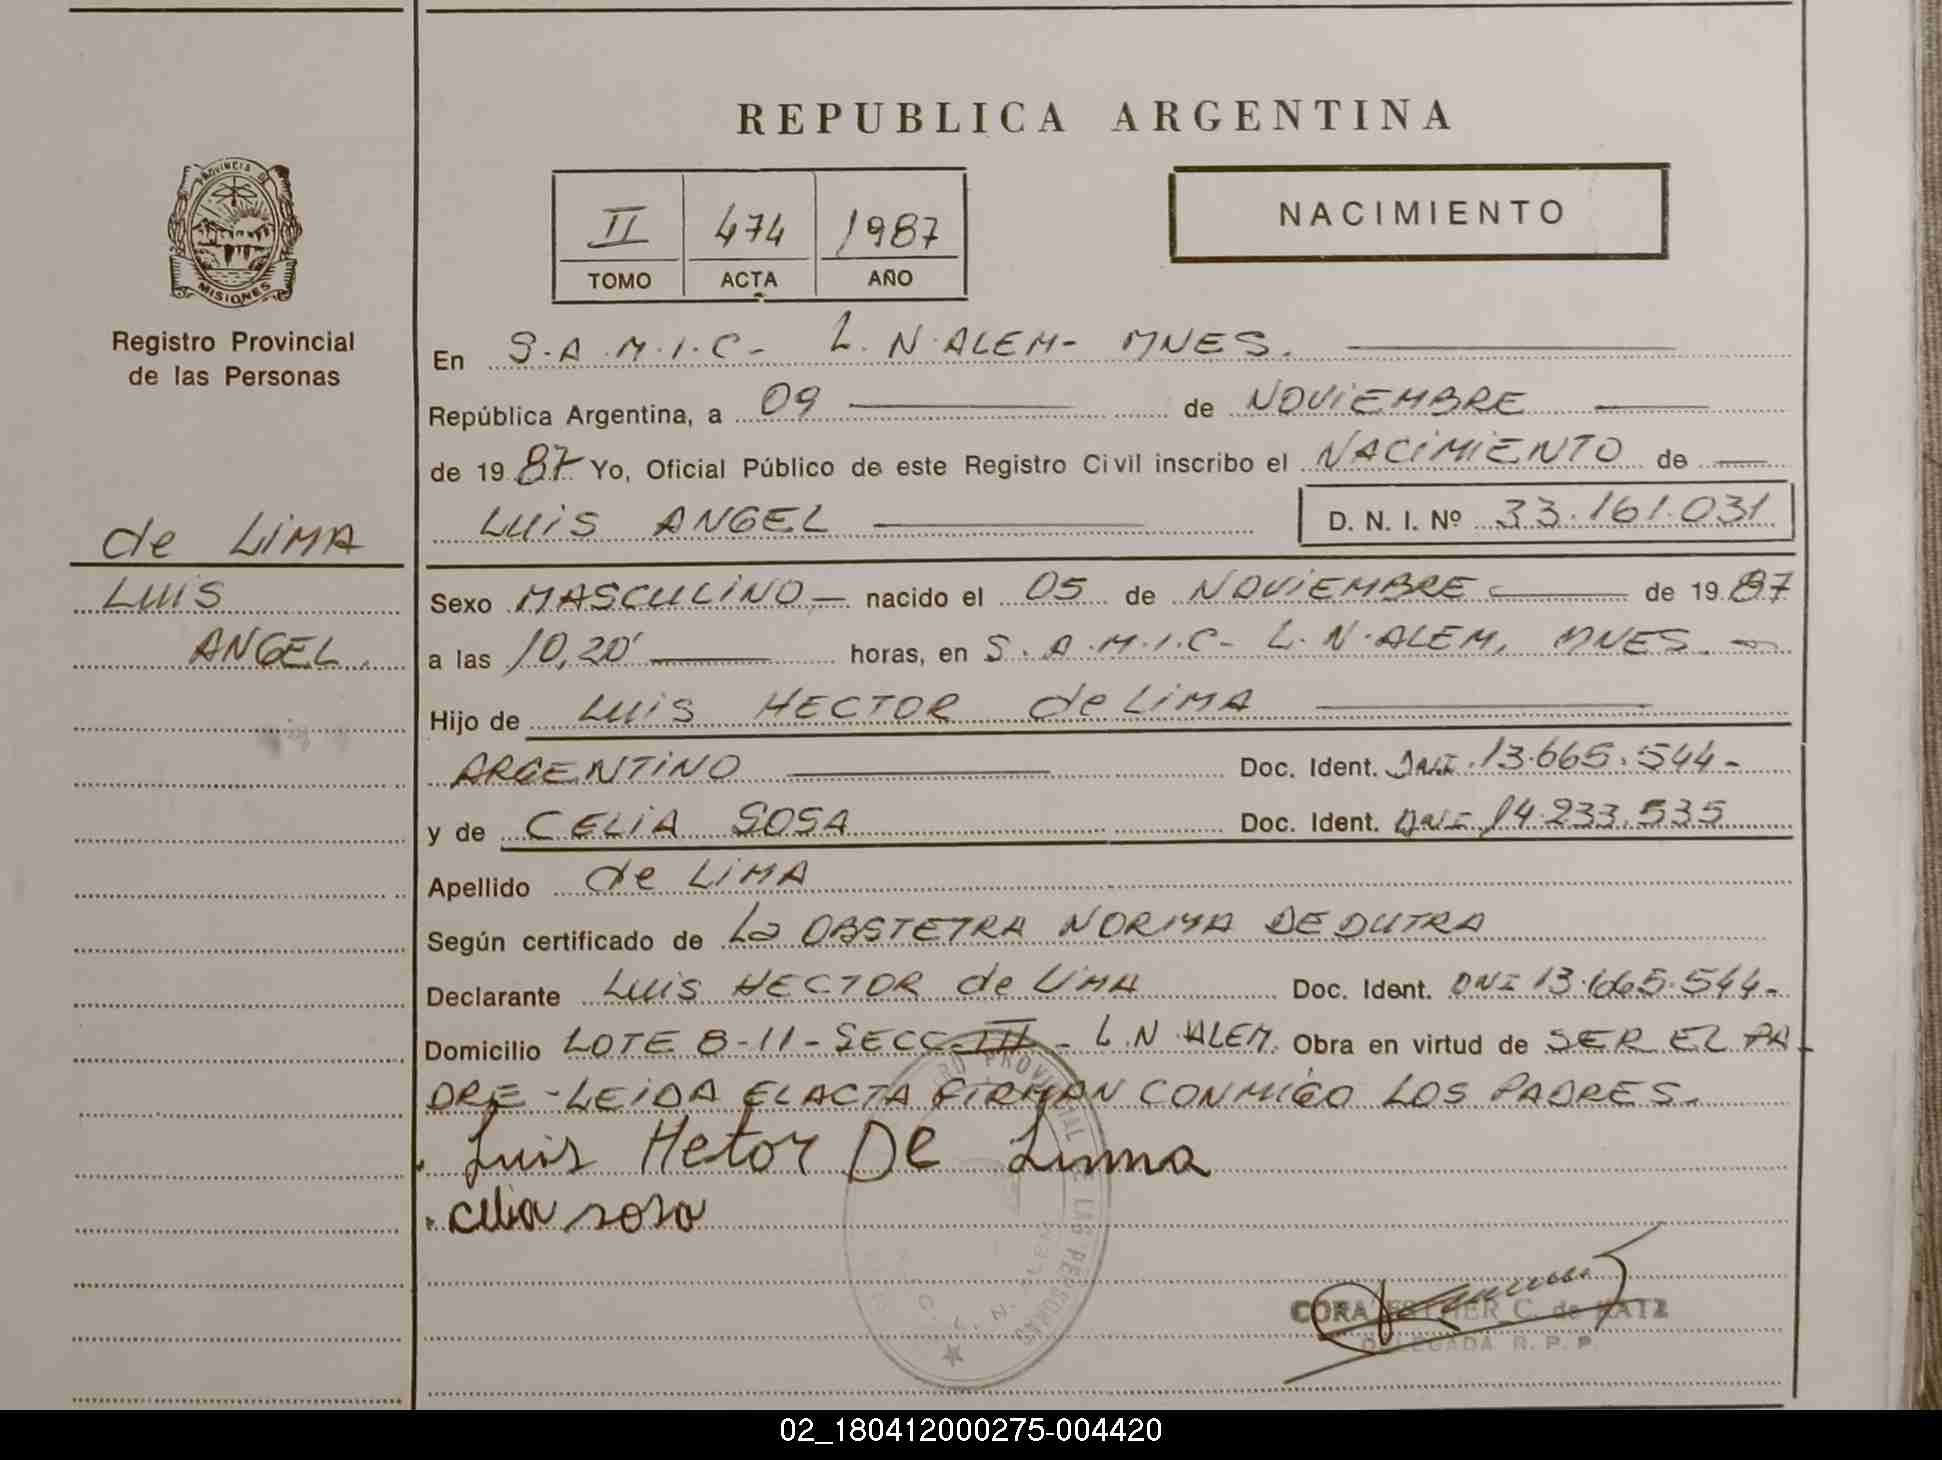 REPUBLICA ARGENTINA
PROVINCIA D
MISIONES
Registro Provincial
de las Personas
II 474 1987
TOMO ACTA AÑO
NACIMIENTO
de LiMA
LUIS
ANGEL.
En S.A.M.I.C- L.N.ALEM- MNES.
República Argentina, a 09 de NOViEMBRE
de 1987 Yo, Oficial Público de este Registro Civil inscribo el NACiMiENTO de
LUiS ANGEL D. N. I. Nº 33.161.031
Sexo MASCULiNO nacido el 05 de NOViEMBRE de 1987
a las 10,20' horas, en S.A.M.I.C- L.N.ALEM, MNES.
Hijo de LUiS HECTOR de LiMA
ARGENTiNO Doc. Ident. DNI 13.665.544-
y de CELiA SOSA Doc. Ident. DNI 14.233.535
Apellido de LiMA
Según certificado de La OBSTETRA NORMA DE DUTRA
Declarante LUiS HECTOR de LiMA Doc. Ident. DNI 13.665.544-
Domicilio LOTE 8-11-SECC-III- L.N ALEM. Obra en virtud de SER EL PA-
DRE-LEIDA EL ACTA FIRMAN CONMIGO LOS PADRES.
Luis Hetor De Limma
celia sosa
RO PROVINCIAL DE LAS PERSONAS
L. N. ALEM
CORA ESTHER C. de KATZ
DELEGADA R. P. P.
02_180412000275-004420